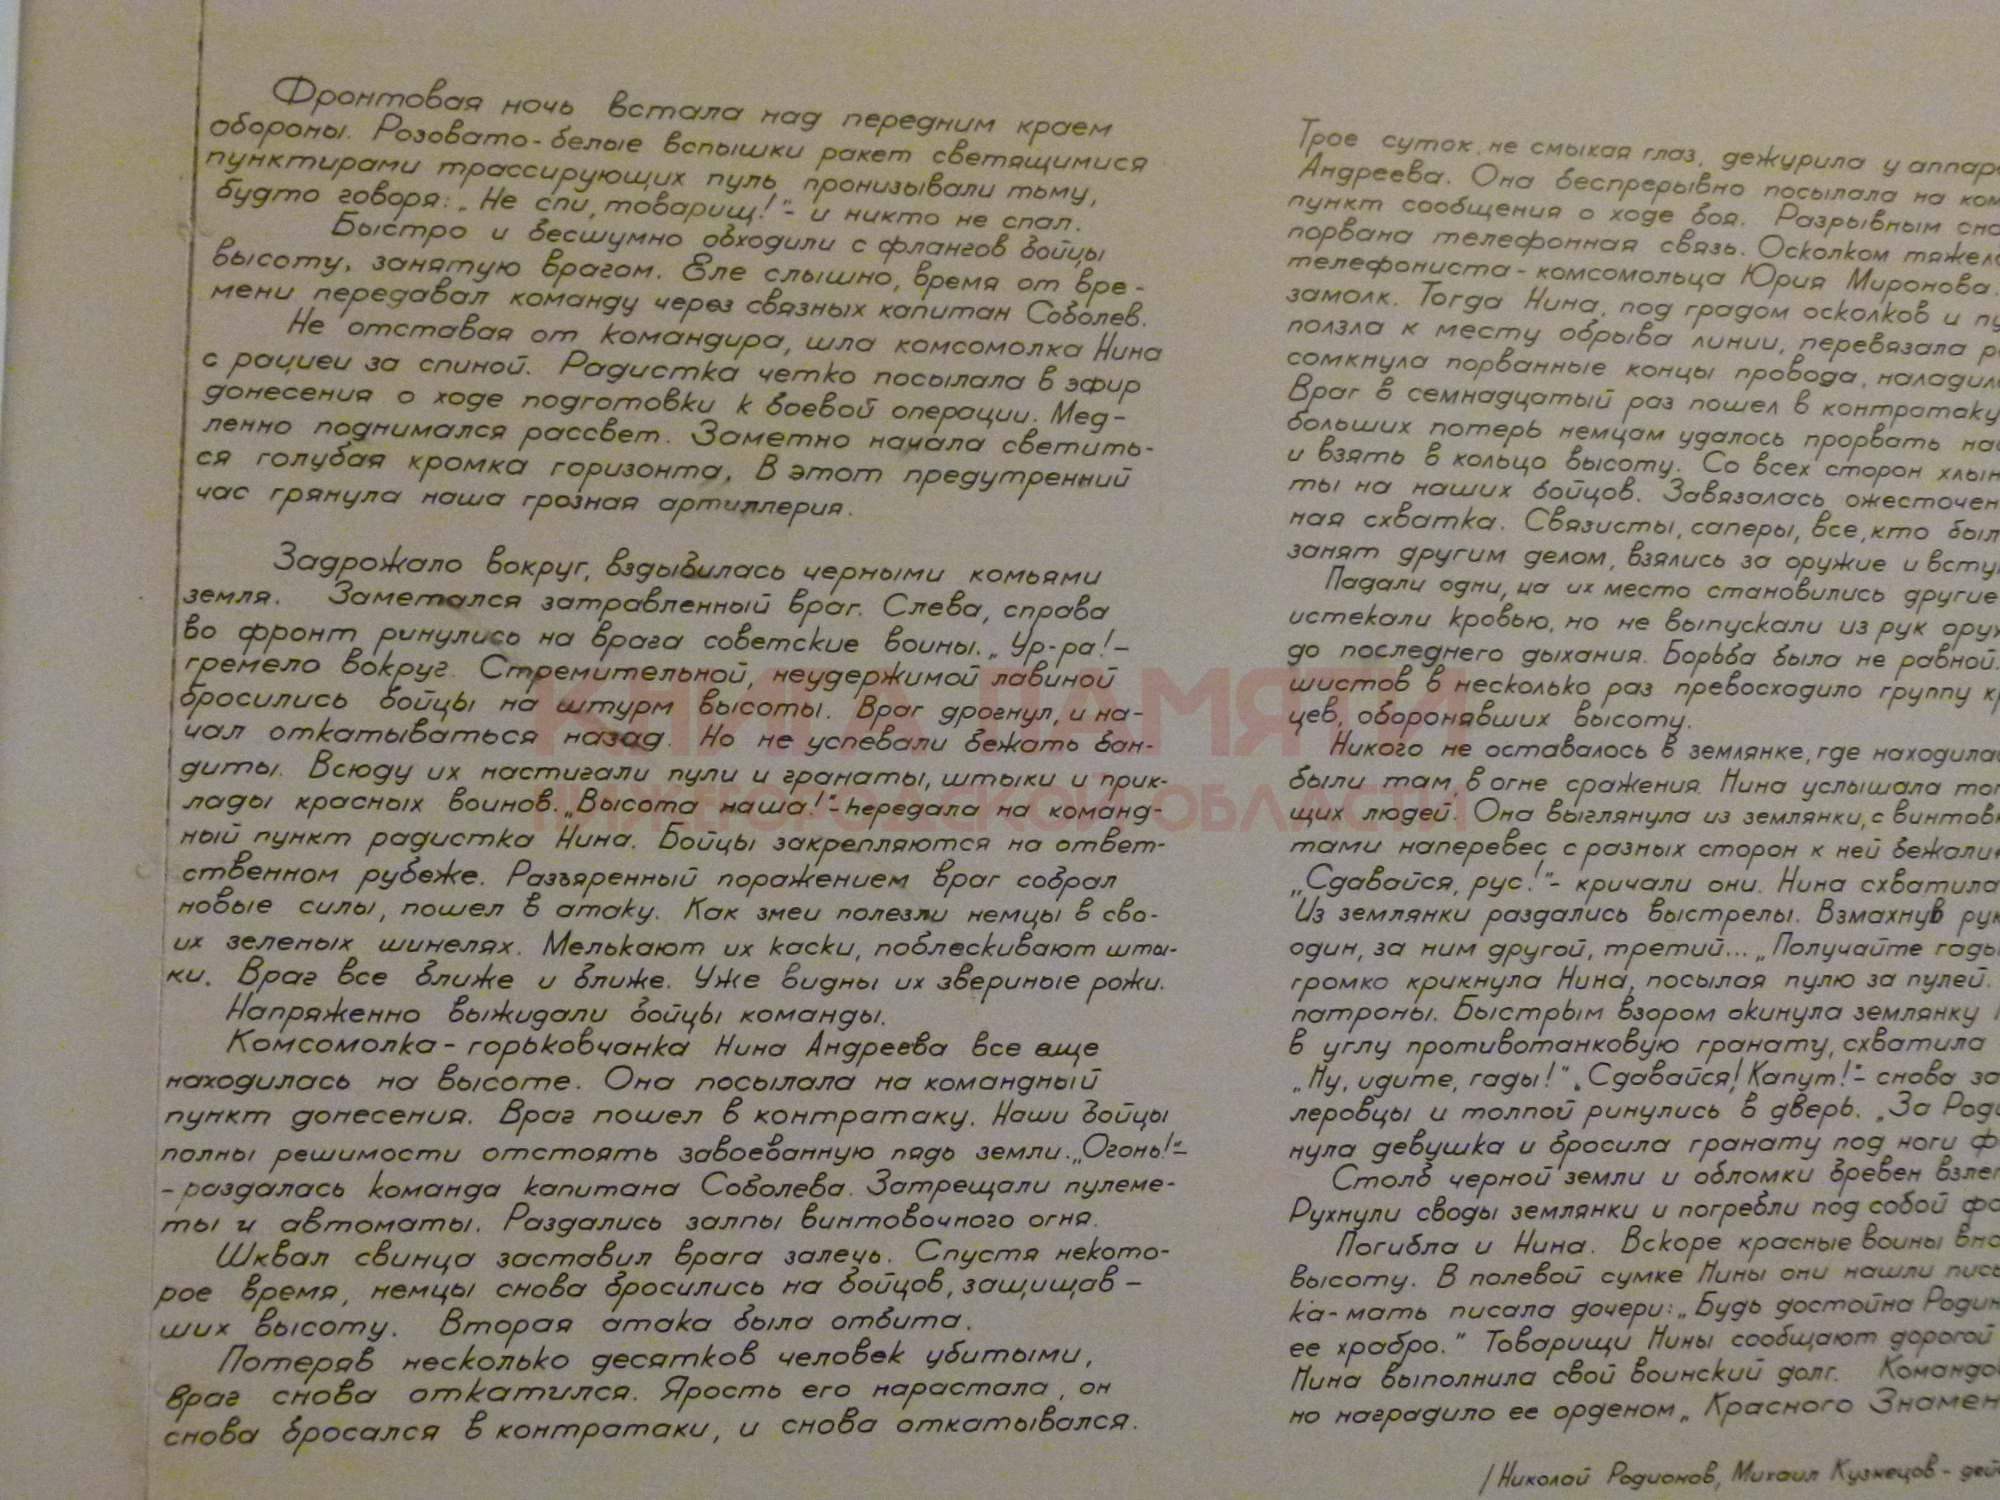 Фронтовая ночь встала над передним краем
обороны. Розовато-белые вспышки ракет светящимися
пунктирами трассирующих пуль пронизывали тьму,
будто говоря: „Не спи, товарищ!"- и никто не спал.
Быстро и бесшумно обходили с флангов бойцы
высоту, занятую врагом. Еле слышно, время от вре-
мени передавал команду через связных капитан Соболев.
Не отставая от командира, шла комсомолка Нина
с рацией за спиной. Радистка четко посылала в эфир
донесения о ходе подготовки к боевой операции. Мед-
ленно поднимался рассвет. Заметно начала светить-
ся голубая кромка горизонта. В этот предутренний
час грянула наша грозная артиллерия.
Задрожало вокруг, вздыбилась черными комьями
земля. Заметался затравленный враг. Слева, справа
во фронт ринулись на врага советские воины. „Ур-ра!-
гремело вокруг. Стремительной, неудержимой лавиной
бросились бойцы на штурм высоты. Враг дрогнул, и на-
чал откатываться назад. Но не успевали бежать бан-
диты. Всюду их настигали пули и гранаты, штыки и прик-
лады красных воинов. „Высота наша!"- передала на команд-
ный пункт радистка Нина. Бойцы закрепляются на ответ-
ственном рубеже. Разъяренный поражением враг собрал
новые силы, пошел в атаку. Как змеи полезли немцы в сво-
их зеленых шинелях. Мелькают их каски, поблескивают шты-
ки. Враг все ближе и ближе. Уже видны их звериные рожи.
Напряженно выжидали бойцы команды.
Комсомолка-горьковчанка Нина Андреева все еще
находилась на высоте. Она посылала на командный
пункт донесения. Враг пошел в контратаку. Наши бойцы
полны решимости отстоять завоеванную пядь земли. „Огонь!"-
-раздалась команда капитана Соболева. Затрещали пулеме-
ты и автоматы. Раздались залпы винтовочного огня.
Шквал свинца заставил врага залечь. Спустя некото-
рое время, немцы снова бросились на бойцов, защищав-
ших высоту. Вторая атака была отбита.
Потеряв несколько десятков человек убитыми,
враг снова откатился. Ярость его нарастала, он
снова бросался в контратаки, и снова откатывался.
Трое суток, не смыкая глаз, дежурила у аппар
Андреева. Она беспрерывно посылала на ком
пункт сообщения о ходе боя. Разрывным сна
порвана телефонная связь. Осколком тяжел
телефониста-комсомольца Юрия Миронова.
замолк. Тогда Нина, под градом осколков и пу
ползла к месту обрыва линии, перевязала р
сомкнула порванные концы провода, наладил
Враг в семнадцатый раз пошел в контратаку
больших потерь немцам удалось прорвать на
и взять в кольцо высоту. Со всех сторон хлын
ты на наших бойцов. Завязалась ожесточен
ная схватка. Связисты, саперы, все, кто был
занят другим делом, взялись за оружие и всту
Падали одни, на их место становились другие
истекали кровью, но не выпускали из рук ору
до последнего дыхания. Борьба была не равной.
шистов в несколько раз превосходило группу к
цев, оборонявших высоту.
Никого не оставалось в землянке, где находила
были там, в огне сражения. Нина услышала то
щих людей. Она выглянула из землянки, с винтов
тами наперевес с разных сторон к ней бежали
„Сдавайся, рус!"- кричали они. Нина схватила
Из землянки раздались выстрелы. Взмахнув рук
один, за ним другой, третий... „Получайте гады
громко крикнула Нина, посылая пулю за пулей.
патроны. Быстрым взором окинула землянку
в углу противотанковую гранату, схватила
„Ну, идите, гады!" „Сдавайся! Капут!"- снова за
леровцы и толпой ринулись в дверь. „За Роди
нула девушка и бросила гранату под ноги ф
Столб черной земли и обломки бревен взле
Рухнули своды землянки и погребли под собой фа
Погибла и Нина. Вскоре красные воины вно
высоту. В полевой сумке Нины они нашли пись
ка-мать писала дочери: „Будь достойна Родин
ее храбро." Товарищи Нины сообщают дорогой
Нина выполнила свой воинский долг. Командо
но наградило ее орденом „Красного Знамен
/Николай Родионов, Михаил Кузнецов - дей
КНИГА ПАМЯТИ
НИЖЕГОРОДСКОЙ ОБЛАСТИ